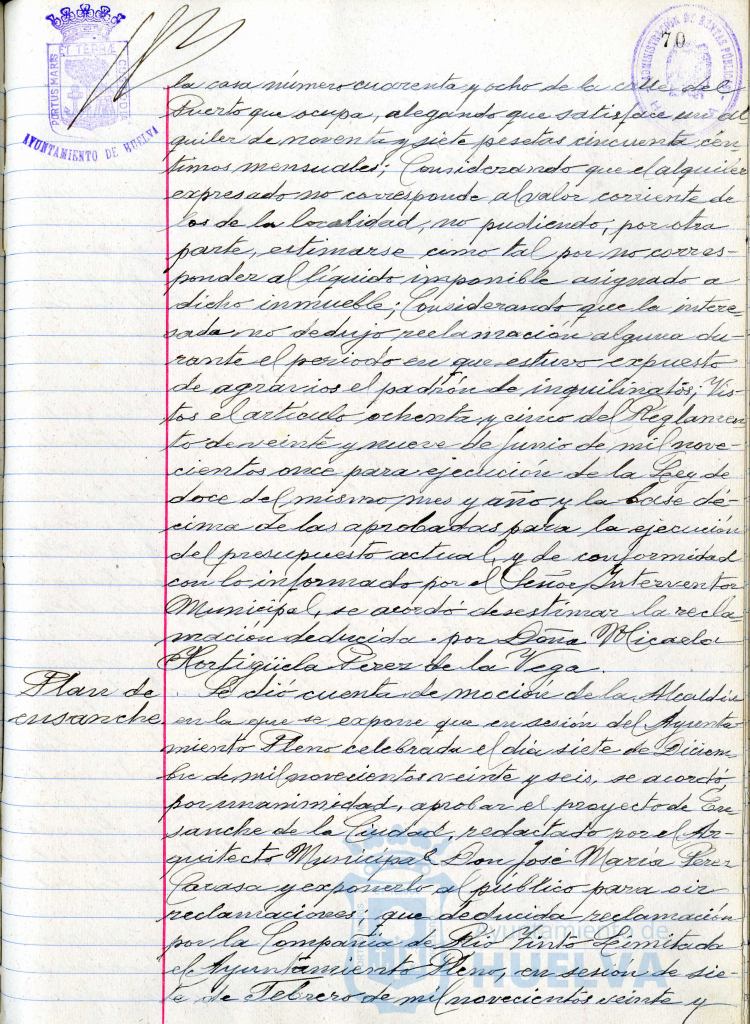 PORTUS MARIS ET TERRÆ CUSTODIA
AYUNTAMIENTO DE HUELVA
70
la casa número cuarenta y ocho de la calle del
Puerto que ocupa, alegando que satisface un al
quiler de noventa y siete pesetas cincuenta cén
timos mensuales; Considerando que el alquiler
expresado no corresponde al valor corriente de
los de la localidad, no pudiendo, por otra
parte, estimarse como tal por no corres-
ponder al líquido imponible asignado a
dicho inmueble; Considerando que la intere
sada no dedujo reclamación alguna du-
rante el periodo en que estuvo expuesto
de agravios el padrón de inquilinatos; Vis
tos el artículo ochenta y cinco del Reglamen
to de veinte y nueve de Junio de mil nove-
cientos once para ejecución de la Ley de
doce del mismo mes y año y la base dé-
cima de las aprobadas para la ejecución
del presupuesto actual, y de conformidad
con lo informado por el Señor Interventor
Municipal, se acordó desestimar la recla
mación deducida por Doña Micaela
Hortigüela Pérez de la Vega.
Plan de
ensanche
Se dió cuenta de moción de la Alcaldía
en la que se expone que en sesión del Ayunta
miento Pleno celebrada el día siete de Diciem
bre de mil novecientos veinte y seis, se acordó
por unanimidad, aprobar el proyecto de En
sanche de la Ciudad, redactado por el Ar-
quitecto Municipal Don José María Pérez
Carasa y exponerlo al público para oir
reclamaciones; que deducida reclamación
por la Compañía de Rio Tinto Limitada
el Ayuntamiento Pleno, en sesión de sie-
te de Febrero de mil novecientos veinte y
Ayuntamiento de
HUELVA